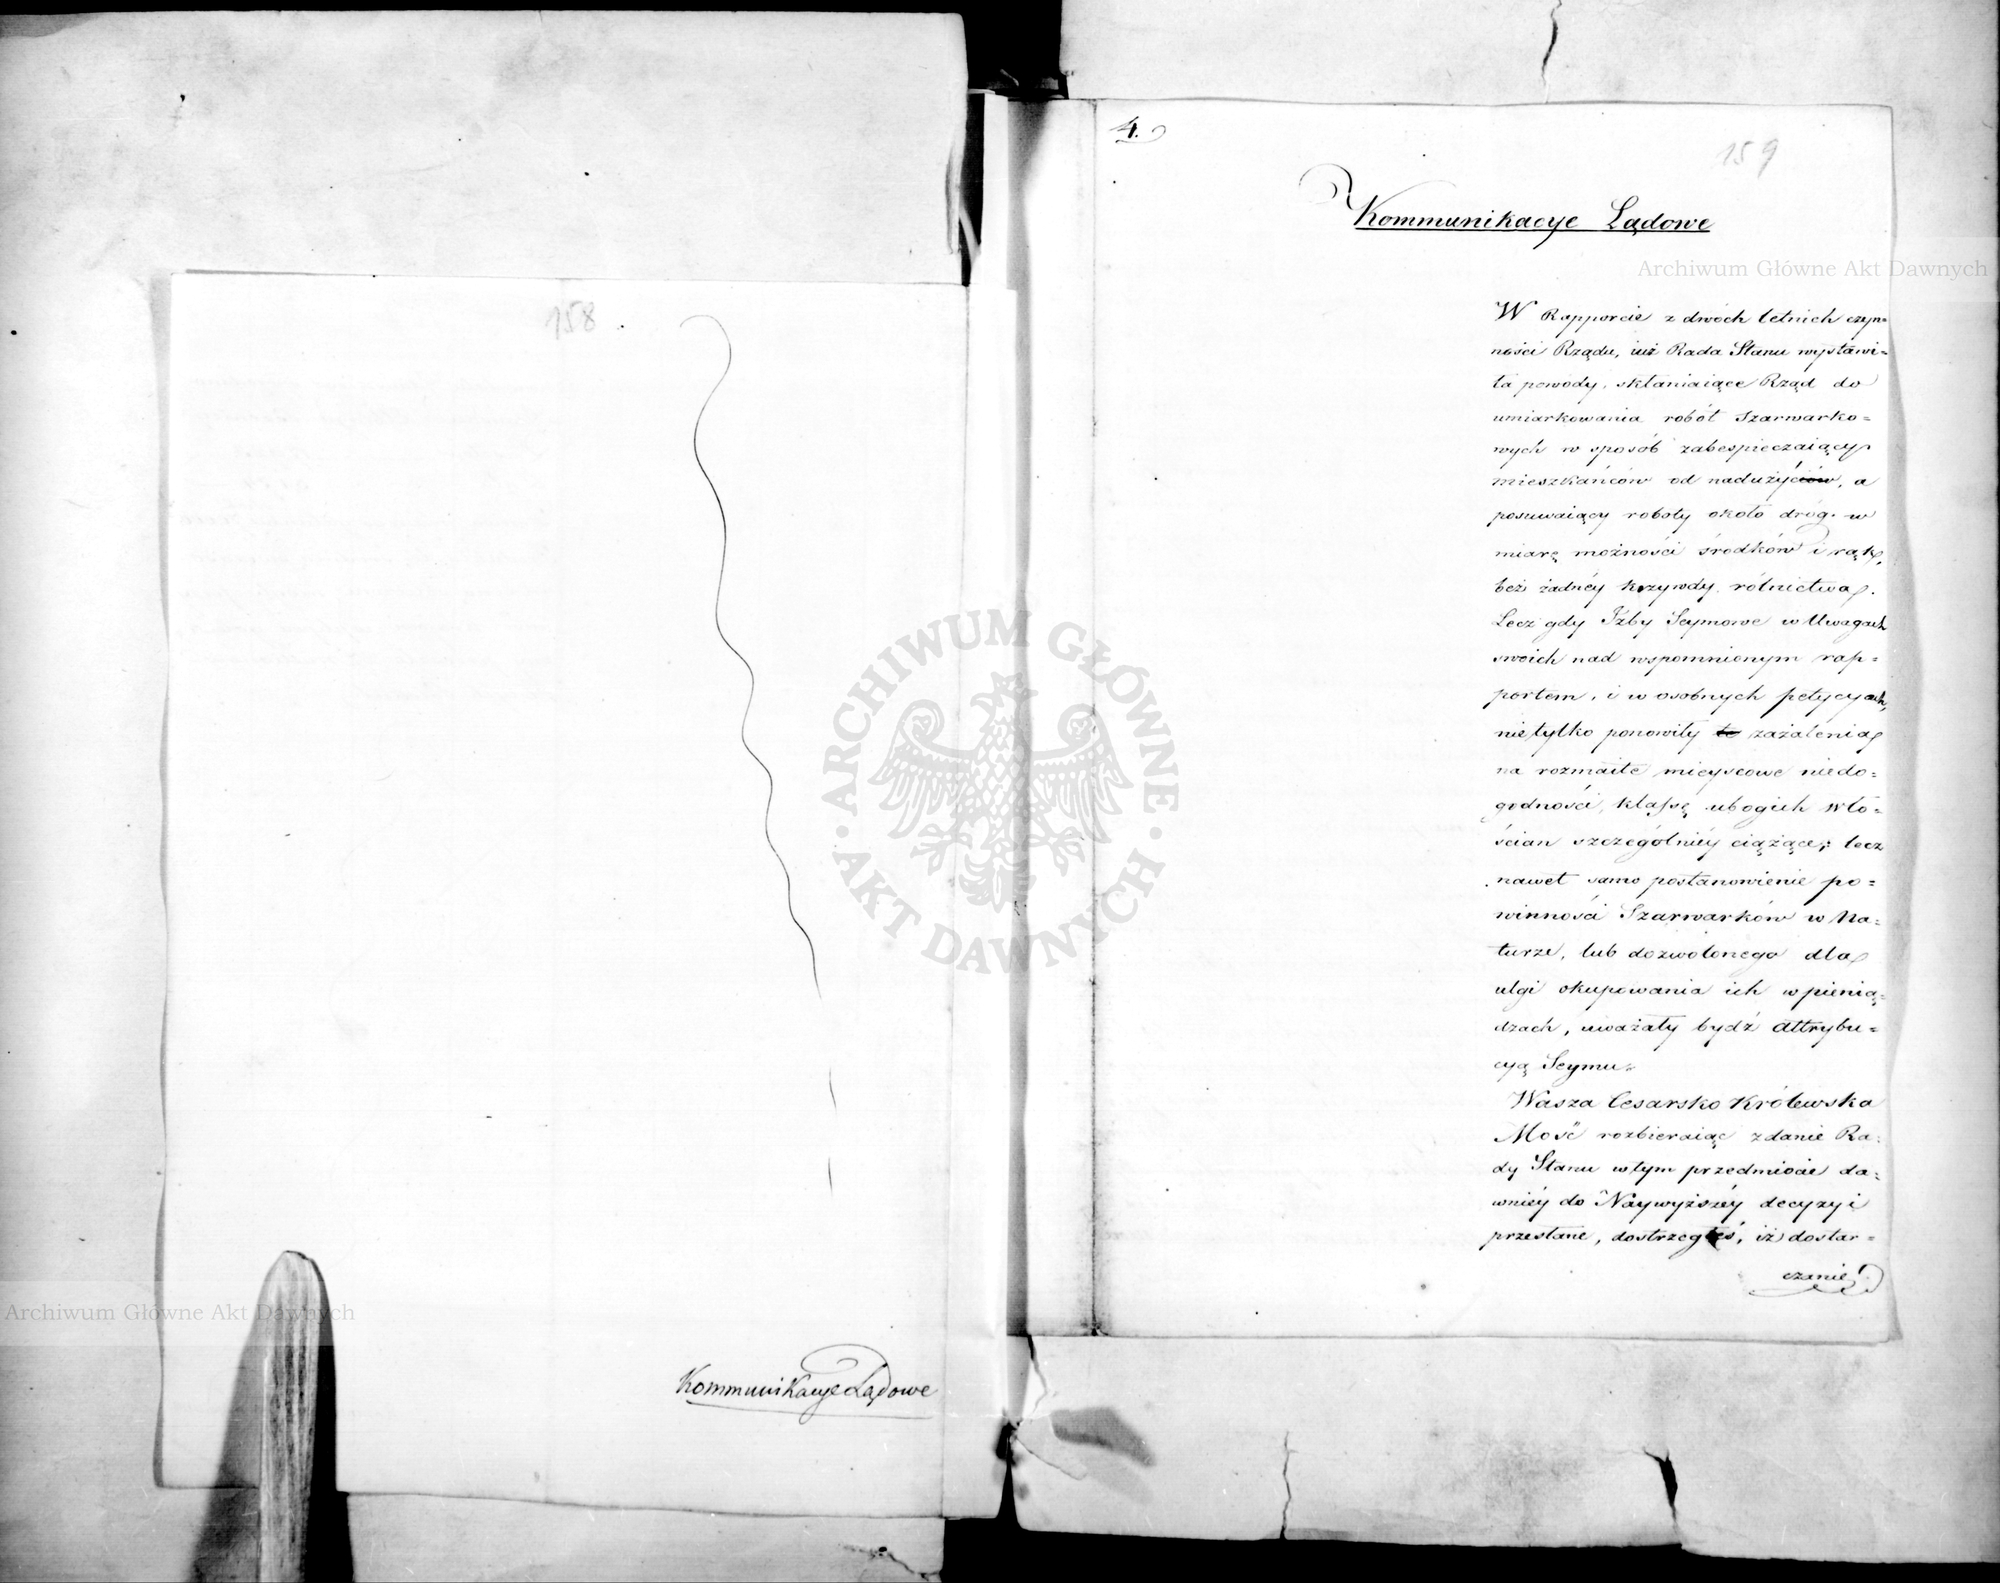 158
Kommunikacye Lądowe
4.
159
Kommunikacye Lądowe
W Rapporcie z dwóch letnich czyn=
ności Rządu, iuż Rada Stanu wystawi=
ła powody, skłaniaiące Rząd do
umiarkowania robót Szarwarko=
wych w sposób zabespieczaiący
mieszkańców od nadużyciów, a
posuwaiący roboty około dróg w
miarę możności środków i rąk,
bez żadnéy krzywdy rólnictwa.
Lecz gdy Izby Seymowe w Uwagach
swoich nad wspomnionym rap=
portem, i w osobnych petycyach,
nietylko ponowiły te zażalenia
na rozmaite mieyscowe niedo=
godności, klassę ubogich Wło=
ścian szczególniéy ciążące; lecz
nawet samo postanowienie po=
winności Szarwarków w Na=
turze, lub dozwolonego dla
ulgi okupowania ich w pienią=
dzach, uważały bydź attrybu=
cyą Seymu.
Wasza Cesarsko Królewska
Mość rozbieraiąc zdanie Ra=
dy Stanu w tym przedmiocie da=
wniéy do Naywyższéy decyzyi
przesłane, dostrzegłeś, iż dostar=
czanie
Archiwum Główne Akt Dawnych
Archiwum Główne Akt Dawnych
ARCHIWUM GŁÓWNE
AKT DAWNYCH